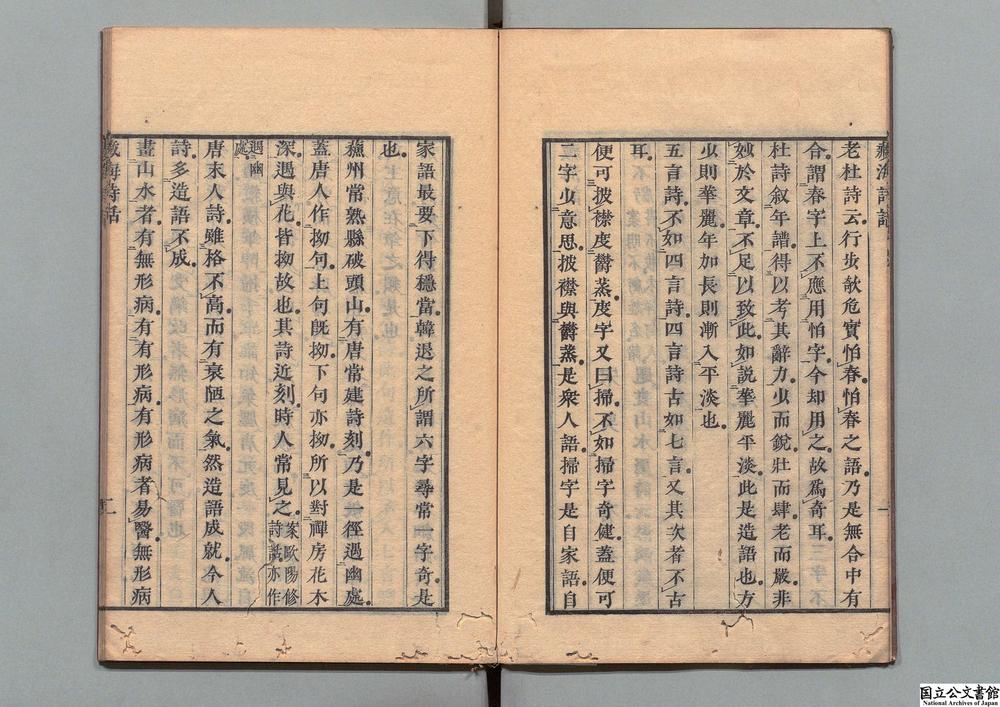 藏海詩話
老杜詩云行步欹危實怕春怕春之語乃是無合中有
合謂春字上不應用怕字今却用之故爲奇耳
杜詩叙年譜得以考其辭力少而銳壯而肆老而嚴非
妙於文章不足以致此如說華麗平淡此是造語也方
少則華麗年加長則漸入平淡也
五言詩不如四言詩四言詩古如七言又其次者不古
耳
便可披襟度欝蒸度字又曰掃不如掃字奇健蓋便可
二字少意思披襟與欝蒸是衆人語掃字是自家語自
一
家語最要下得穩當韓退之所謂六字尋常一字奇是
也
蘓州常熟縣破頭山有唐常建詩刻乃是一徑遇幽處
蓋唐人作拗句上句既拗下句亦拗所以對禪房花木
深遇與花皆拗故也其詩近刻時人常見之
案歐陽修
詩話亦作
遇幽
處
唐末人詩雖格不高而有衰陋之氣然造語成就今人
詩多造語不成
畫山水者有無形病有有形病有形病者易醫無形病
藏海詩話
二
国立公文書館
National Archives of Japan